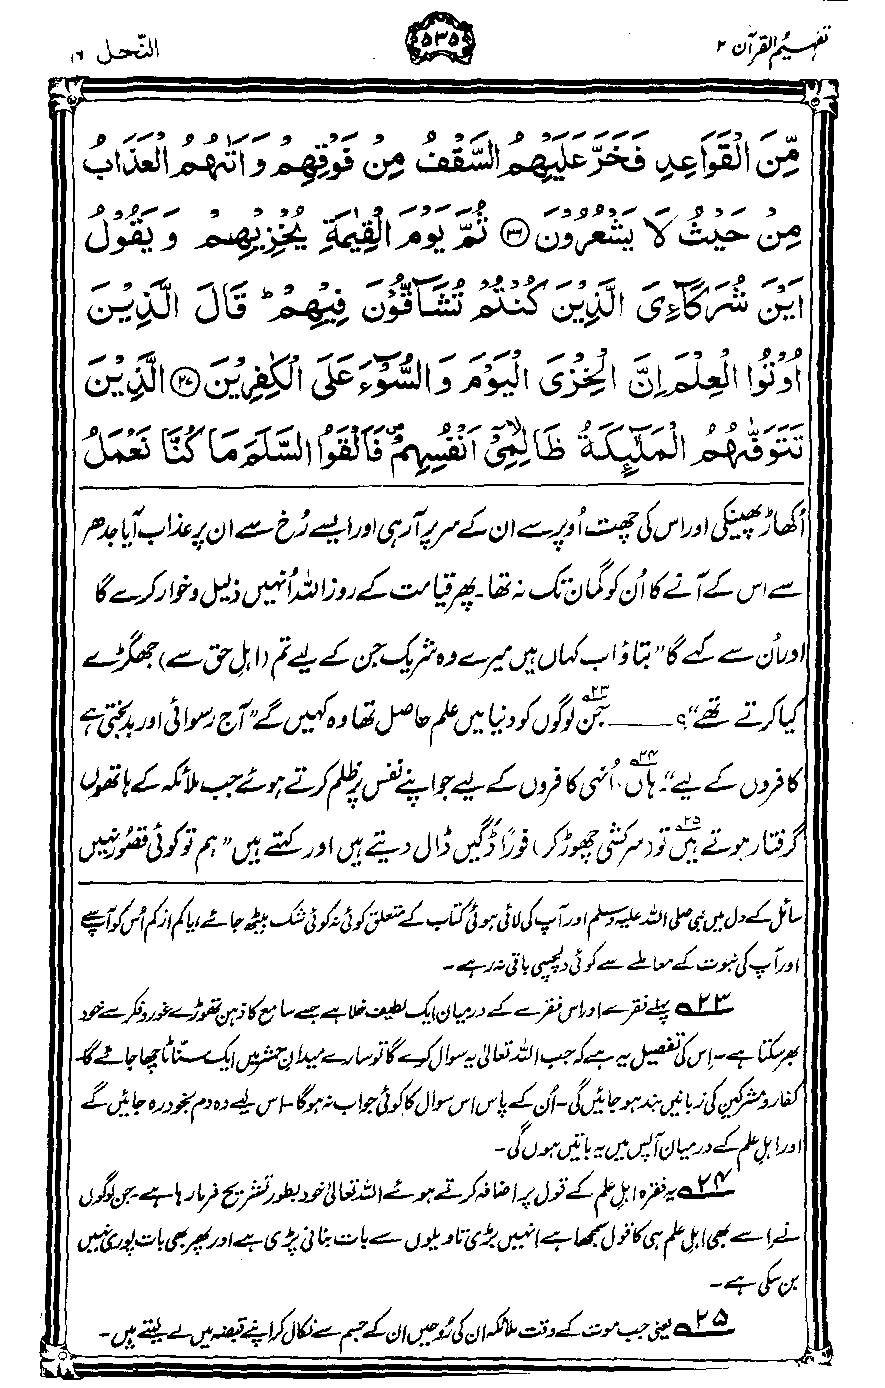 تفہیم القرآن ۲
۵۳۵
النّحل ۱۶
مِّنَ الْقَوَاعِدِ فَخَرَّ عَلَيْهِمُ السَّقْفُ مِنْ فَوْقِهِمْ وَاَتٰىهُمُ الْعَذَابُ
مِنْ حَيْثُ لَا يَشْعُرُوْنَ ۲۶ ثُمَّ يَوْمَ الْقِيٰمَةِ يُخْزِيْهِمْ وَيَقُوْلُ
اَيْنَ شُرَكَآءِيَ الَّذِيْنَ كُنْتُمْ تُشَآقُّوْنَ فِيْهِمْ ؕ قَالَ الَّذِيْنَ
اُوْتُوا الْعِلْمَ اِنَّ الْخِزْيَ الْيَوْمَ وَالسُّوْٓءَ عَلَى الْكٰفِرِيْنَ ۲۷ الَّذِيْنَ
تَتَوَفّٰىهُمُ الْمَلٰٓئِكَةُ ظَالِمِيْٓ اَنْفُسِهِمْ ۪ فَاَلْقَوُا السَّلَمَ مَا كُنَّا نَعْمَلُ
اُکھاڑ پھینکی اور اس کی چھت اُوپر سے ان کے سر پر آ رہی اور ایسے رُخ سے ان پر عذاب آیا جدھر
سے اس کے آنے کا اُن کو گمان تک نہ تھا۔ پھر قیامت کے روز اللہ اُنہیں ذلیل و خوار کرے گا
اور اُن سے کہے گا ”بتاؤ اب کہاں ہیں میرے وہ شریک جن کے لیے تم (اہلِ حق سے) جھگڑے
کیا کرتے تھے“؟ ——— ۲۳ جن لوگوں کو دنیا میں علم حاصل تھا وہ کہیں گے ”آج رسوائی اور بدبختی ہے
کافروں کے لیے“۔ ۲۴ ہاں، اُنہی کافروں کے لیے جو اپنے نفس پر ظلم کرتے ہوئے جب ملائکہ کے ہاتھوں
گرفتار ہوتے ہیں ۲۵ تو (سرکشی چھوڑ کر) فوراً ڈگیں ڈال دیتے ہیں اور کہتے ہیں ”ہم تو کوئی قصور نہیں
سائل کے دل میں نبی صلی اللہ علیہ وسلم اور آپ کی لائی ہوئی کتاب کے متعلق کوئی نہ کوئی شک بیٹھ جائے، یا کم از کم اُس کو آپ سے
اور آپ کی نبوت کے معاملے سے کوئی دلچسپی باقی نہ رہے۔
۲۳ پہلے فقرے اور اس فقرے کے درمیان ایک لطیف خلا ہے جسے سامع کا ذہن تھوڑے غور و فکر سے خود
بھر سکتا ہے۔ اِس کی تفصیل یہ ہے کہ جب اللہ تعالیٰ یہ سوال کرے گا تو سارے میدانِ حشر میں ایک سنّاٹا چھا جائے گا۔
کفار و مشرکین کی زبانیں بند ہو جائیں گی۔ اُن کے پاس اس سوال کا کوئی جواب نہ ہوگا۔ اس لیے وہ دم بخود رہ جائیں گے
اور اہلِ علم کے درمیان آپس میں یہ باتیں ہوں گی۔
۲۴ یہ فقرہ اہلِ علم کے قول پر اضافہ کرتے ہوئے اللہ تعالیٰ خود بطور تشریح فرما رہا ہے۔ جن لوگوں
نے اسے بھی اہلِ علم ہی کا قول سمجھا ہے انہیں بڑی تاویلوں سے بات بنانی پڑی ہے اور پھر بھی بات پوری نہیں
بن سکی ہے۔
۲۵ یعنی جب موت کے وقت ملائکہ ان کی رُوحیں ان کے جسم سے نکال کر اپنے قبضہ میں لے لیتے ہیں۔